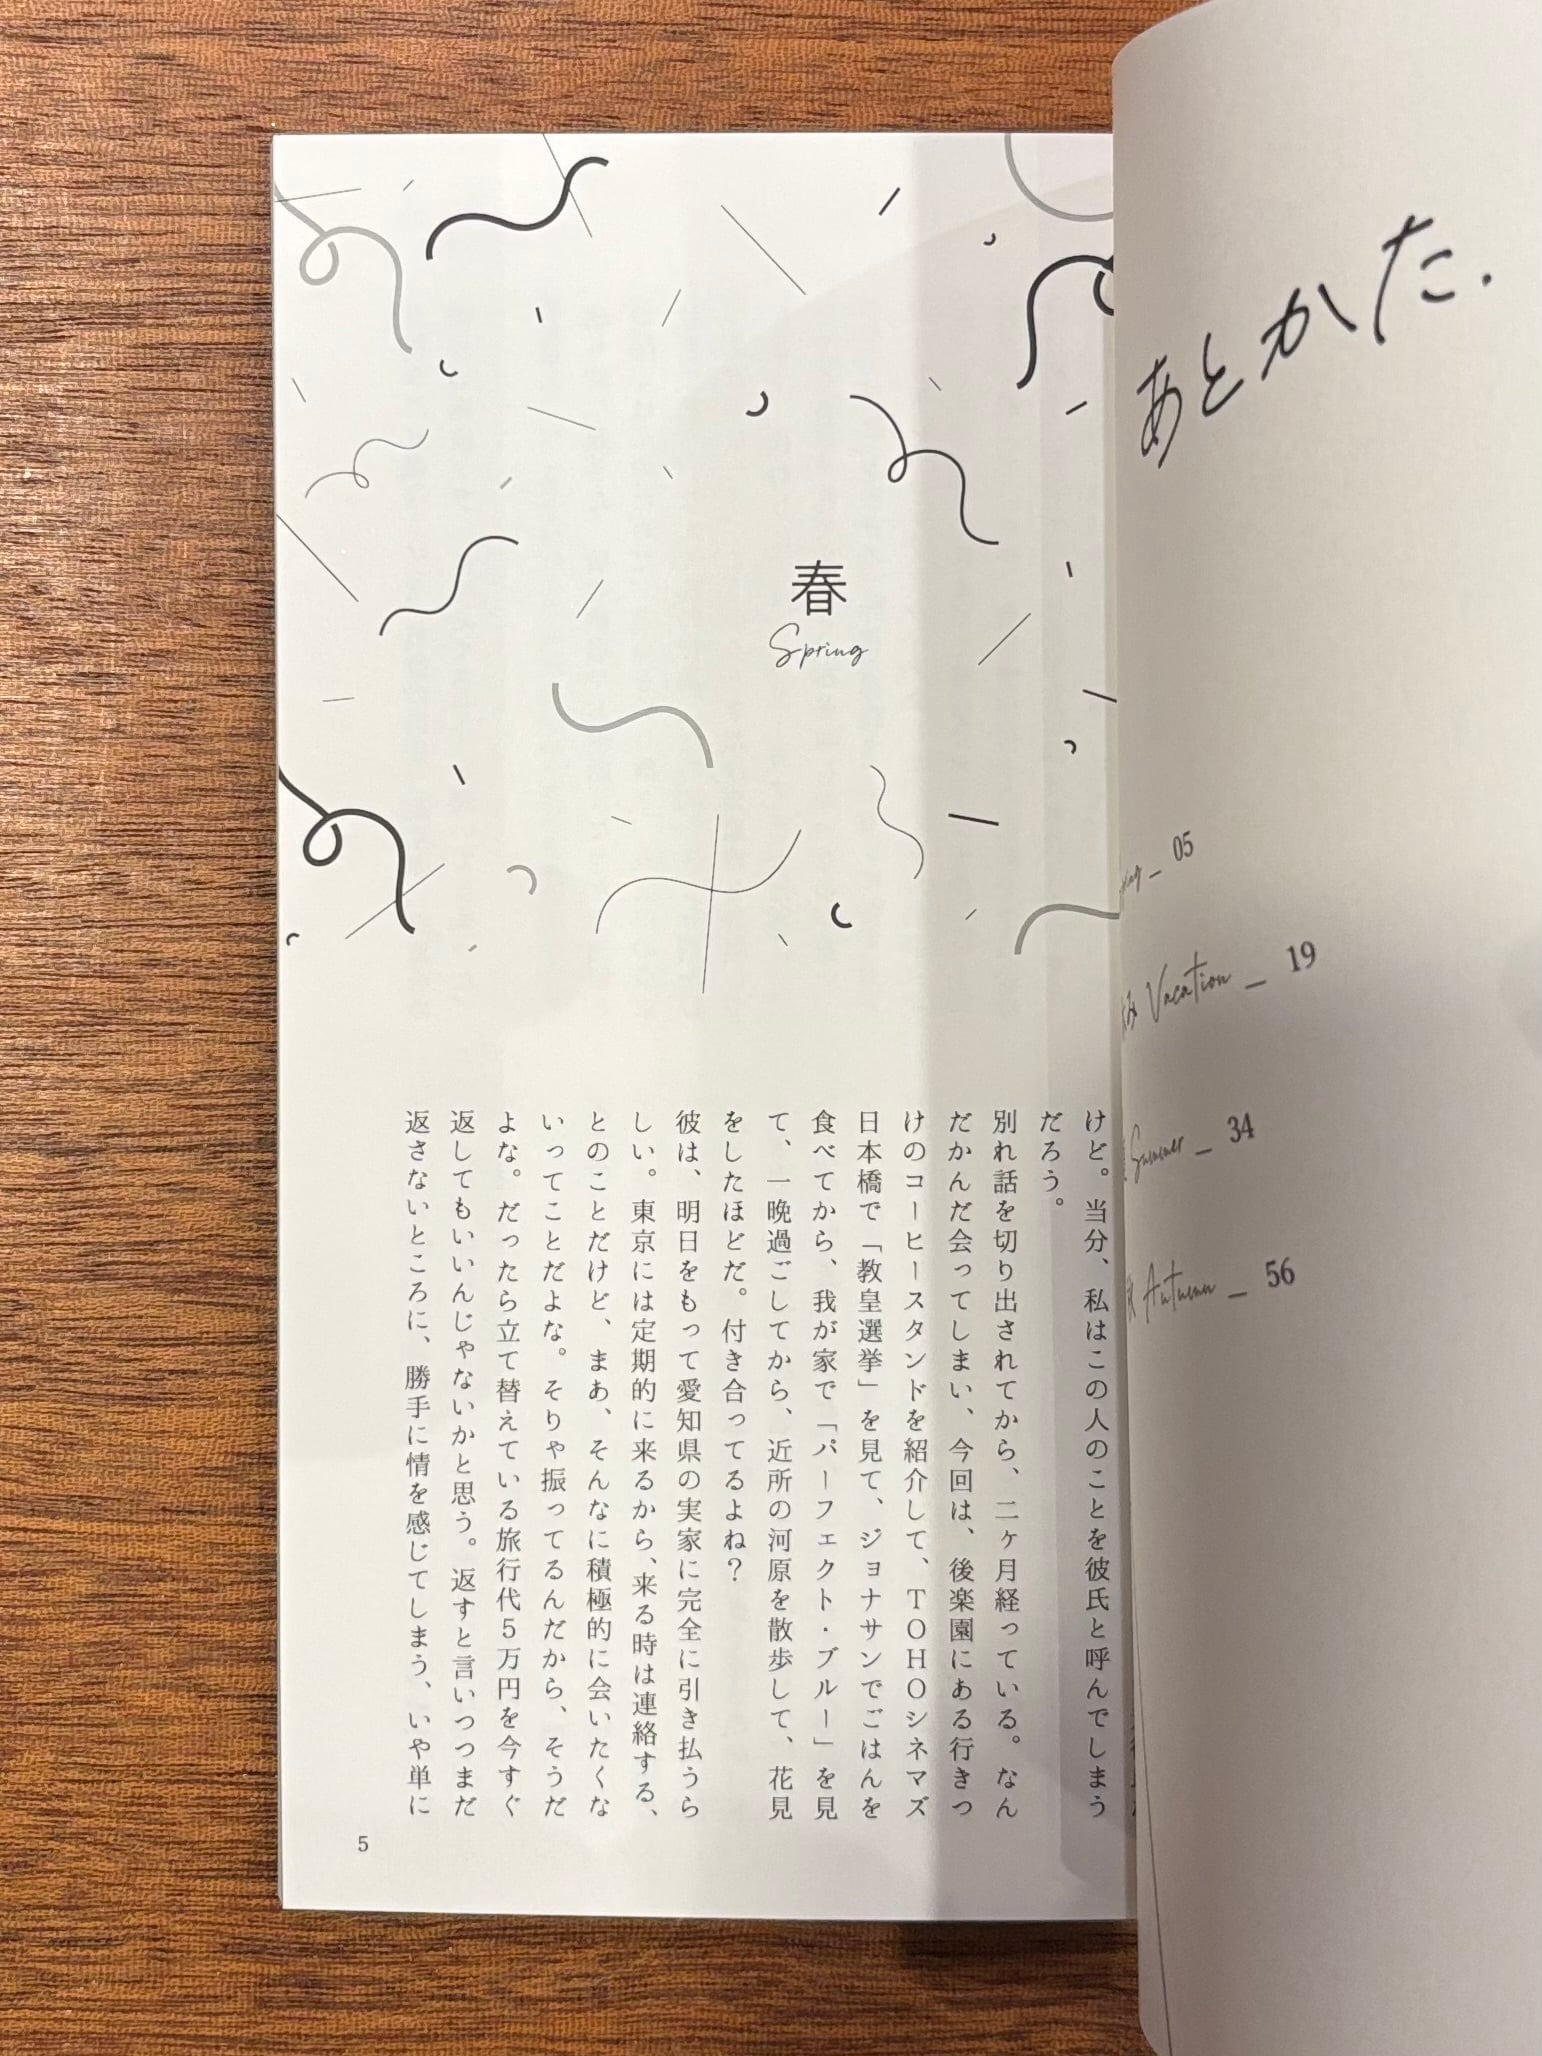 あとかた.
05
Vacation _ 19
Summer _ 34
Autumn _ 56
春
Spring
けど。当分、私はこの人のことを彼氏と呼んでしまう
だろう。
別れ話を切り出されてから、二ヶ月経っている。なん
だかんだ会ってしまい、今回は、後楽園にある行きつ
けのコーヒースタンドを紹介して、TOHOシネマズ
日本橋で「教皇選挙」を見て、ジョナサンでごはんを
食べてから、我が家で「パーフェクト・ブルー」を見
て、一晩過ごしてから、近所の河原を散歩して、花見
をしたほどだ。付き合ってるよね？
彼は、明日をもって愛知県の実家に完全に引き払うら
しい。東京には定期的に来るから、来る時は連絡する、
とのことだけど、まあ、そんなに積極的に会いたくな
いってことだよな。そりゃ振ってるんだから、そうだ
よな。だったら立て替えている旅行代５万円を今すぐ
返してもいいんじゃないかと思う。返すと言いつつまだ
返さないところに、勝手に情を感じてしまう、いや単に
5